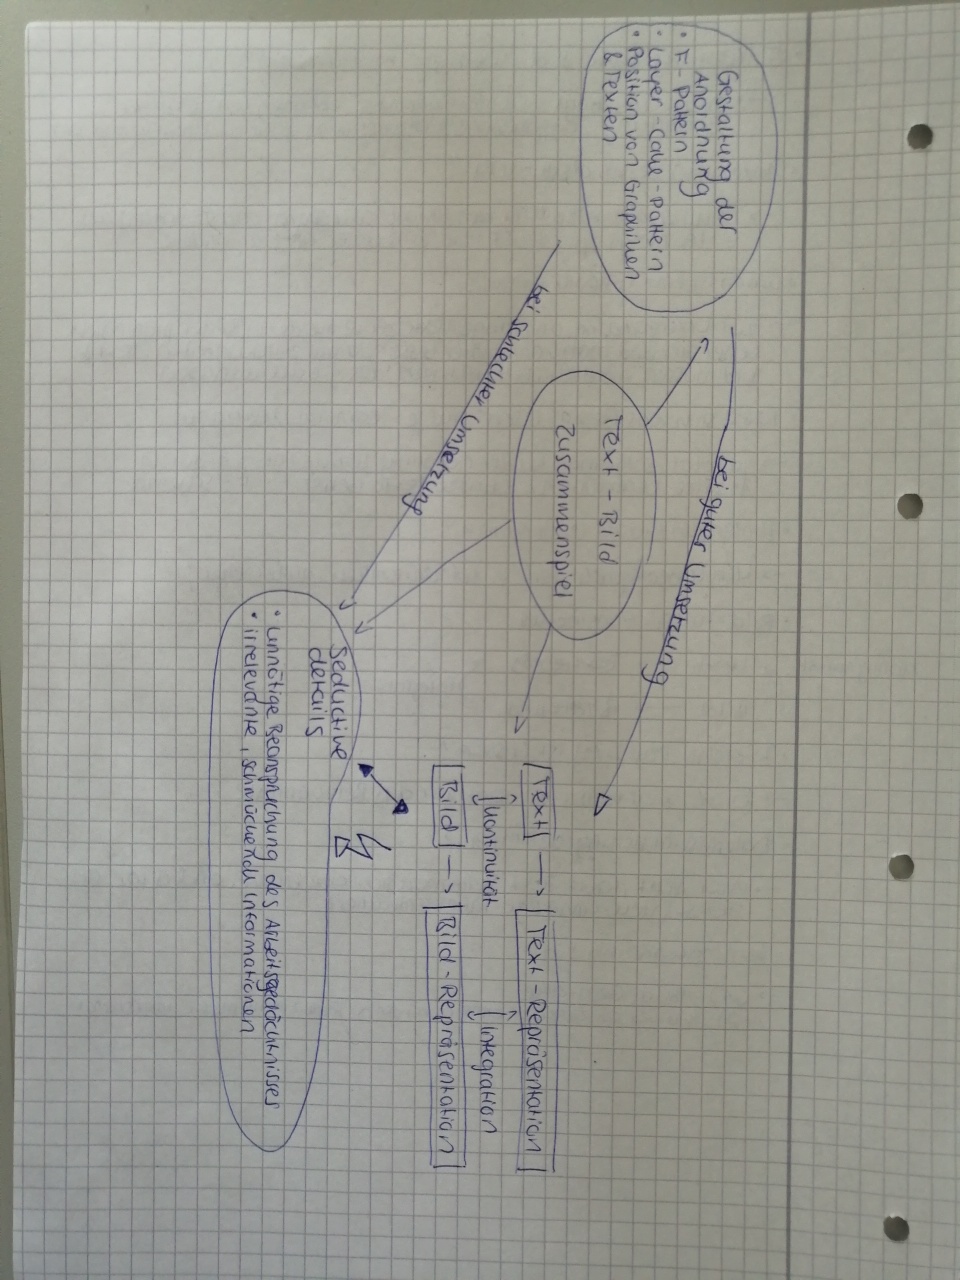 Gestaltung der
Anordnung
• F-Pattern
• Layer-Cake-Pattern
• Position von Graphiken
& Texten
bei guter Umsetzung
bei schlechter Umsetzung
Text-Bild
Zusammenspiel
Text → Text-Repräsentation
Kontinuität Integration
Bild → Bild-Repräsentation
Seductive
details
• unnötige Beanspruchung des Arbeitsgedächtnisses
• irrelevante, schmückende Informationen